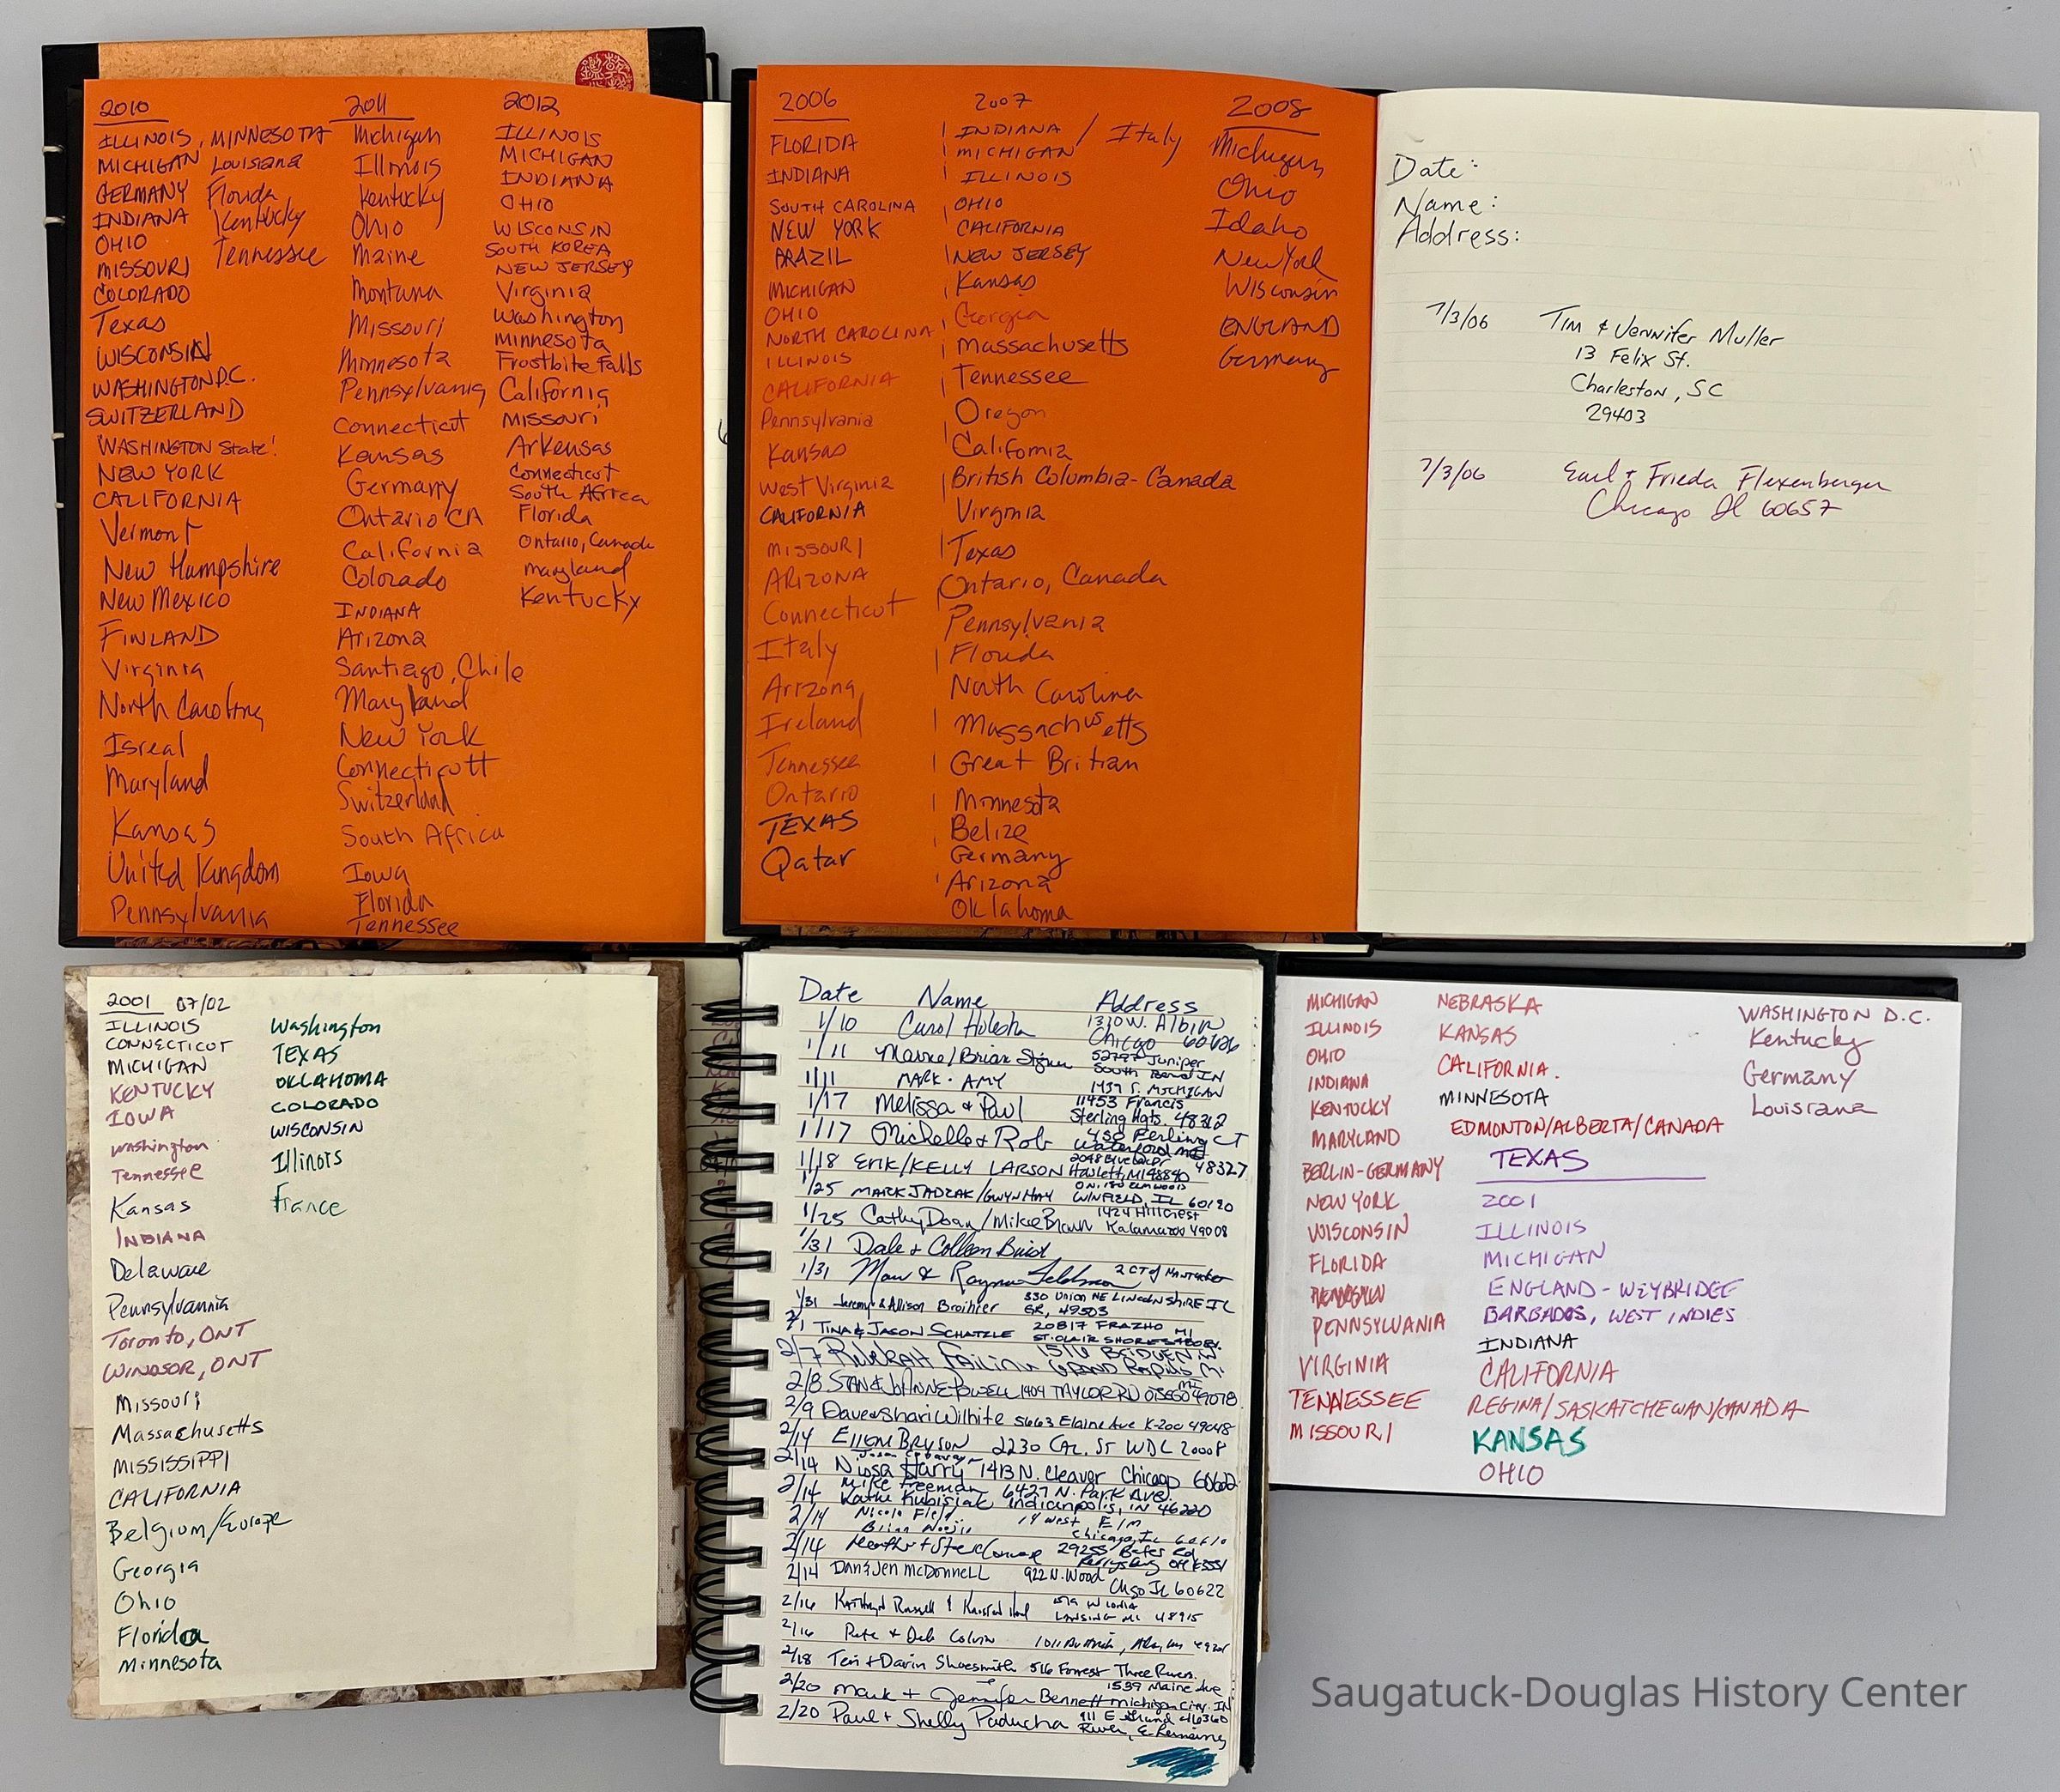 2010
ILLINOIS, MINNESOTA
MICHIGAN Louisiana
GERMANY Florida
INDIANA Kentucky
OHIO
MISSOURI Tennessee
COLORADO
Texas
WISCONSIN
WASHINGTON D.C.
SWITZERLAND
WASHINGTON State!
NEW YORK
CALIFORNIA
Vermont
New Hampshire
New Mexico
FINLAND
Virginia
North Carolina
Isreal
Maryland
Kansas
United Kingdom
Pennsylvania
2011
Michigan
Illinois
Kentucky
Ohio
Maine
Montana
Missouri
Minnesota
Pennsylvania
Connecticut
Kansas
Germany
Ontario CA
California
Colorado
INDIANA
Arizona
Santiago, Chile
Maryland
New York
Connecticutt
Switzerland
South Africa
Iowa
Florida
Tennessee
2012
ILLINOIS
MICHIGAN
INDIANA
OHIO
WISCONSIN
SOUTH KOREA
NEW JERSEY
Virginia
Washington
Minnesota
Frostbite Falls
California
Missouri
Arkensas
Connecticut
South Africa
Florida
Ontario, Canada
Maryland
Kentucky
2006
FLORIDA
INDIANA
SOUTH CAROLINA
NEW YORK
BRAZIL
MICHIGAN
OHIO
NORTH CAROLINA
ILLINOIS
CALIFORNIA
Pennsylvania
Kansas
West Virginia
CALIFORNIA
MISSOURI
ARIZONA
Connecticut
Italy
Arizona
Ireland
Tennessee
Ontario
TEXAS
Qatar
2007
INDIANA / Italy
MICHIGAN
ILLINOIS
OHIO
CALIFORNIA
NEW JERSEY
Kansas
Georgia
Massachusetts
Tennessee
Oregon
California
British Columbia- Canada
Virginia
Texas
Ontario, Canada
Pennsylvania
Florida
North Carolina
Massachusetts
Great Britian
Minnesota
Belize
Germany
Arizona
Oklahoma
2008
Michigan
Ohio
Idaho
New York
Wisconsin
ENGLAND
Germany
Date:
Name:
Address:
7/3/06 Tim & Jennifer Muller
13 Felix St.
Charleston, SC
29403
7/3/06 Earl & Frieda Flexenberger
Chicago Il 60657
2001 07/02
ILLINOIS
CONNECTICUT
MICHIGAN
KENTUCKY
IOWA
Washington
Tennessee
Kansas
INDIANA
Delaware
Pennsylvannia
Toronto, ONT
WINDSOR, ONT
Missouri
Massachusetts
MISSISSIPPI
CALIFORNIA
Belgium/Europe
Georgia
Ohio
Florida
Minnesota
Washington
TEXAS
OKLAHOMA
COLORADO
WISCONSIN
Illinois
France
Date Name Address
1/10 Carol 1330 W. Albion
Chicago 60626
1/11 Brian 52797 Juniper
South Bend IN
1/11 MARK · AMY 1439 S. MICHIGAN
1/17 Melissa & Paul 11453 Francis
Sterling Hgts. 48312
1/17 Michelle & Rob 450
Waterford
1/18 ERIK/KELLY LARSON 48327
Howlett, MI 48840
1/25 MARK JADZAK/GWYN HAY
WINFIELD, IL 60190
1/25 Cathy Doan/Mike Brown 1424 Hillcrest
Kalamazoo 49008
1/31 Dale & Colleen
1/31 2 CT of Nantucket
LINCOLNSHIRE IL
1/31 Jeremy & Allison Broihier 330 Union NE
GR, 49503
2/1 TINA & JASON SCHATZLE 20817 FRAZHO MI
ST. CLAIR SHORES
2/7 GRAND RAPIDS MI
2/8 STAN & JOANNE POWELL 1404 TAYLOR RD OTSEGO MI 49078
2/9 Dave & Shari Wilhite 5663 Elaine Ave K-zoo 49048
2/14 Ellen BRYSON 2230 CAL. ST WDC 20008
2/14 Nissa Harry 1413 N. Cleaver Chicago 60622
2/14 Mike Freeman 6427 N. Park Ave.
Kathi Kubisiak Indianpolis, IN 46220
2/14 Nicole Field 14 West Elm
Brian Chicago, IL 60610
2/14 Heather & Steve 29255 Bates Rd
Perrysburg OH
2/14 Dan & Jen McDonnell 922 N. Wood
Chgo IL 60622
2/16 Kathryn Russell & Kristen
LANSING MI 48915
2/16 Pete & Deb Colvin 1011
2/18 Teri & Darin Shoesmith 516 Forrest Three Rivers
2/20 Mark & Jennifer Bennett 1539 Maine Ave
Michigan City, IN 46360
2/20 Paul & Shelly Paducha 911 E
MICHIGAN
ILLINOIS
OHIO
INDIANA
KENTUCKY
MARYLAND
BERLIN-GERMANY
NEW YORK
WISCONSIN
FLORIDA
PENNSYLVANIA
VIRGINIA
TENNESSEE
MISSOURI
NEBRASKA
KANSAS
CALIFORNIA.
MINNESOTA
EDMONTON/ALBERTA/CANADA
TEXAS
2001
ILLINOIS
MICHIGAN
ENGLAND - WEYBRIDGE
BARBADOS, WEST INDIES
INDIANA
CALIFORNIA
REGINA/SASKATCHEWAN/CANADA
KANSAS
OHIO
WASHINGTON D.C.
Kentucky
Germany
Louisiana
Saugatuck-Douglas History Center